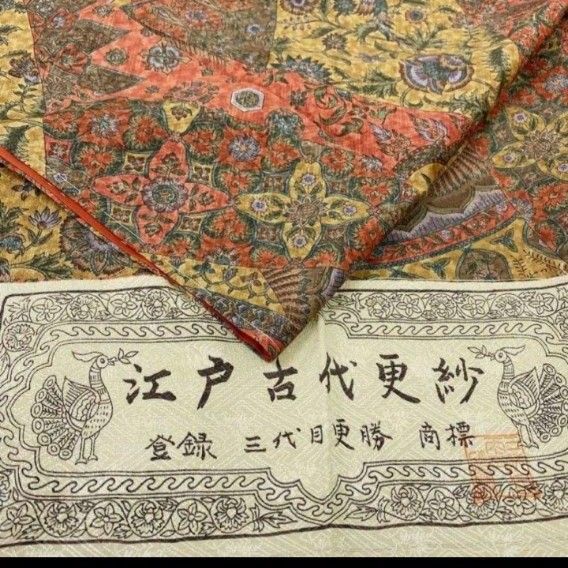 江戸古代更紗
登録 三代目更勝 商標